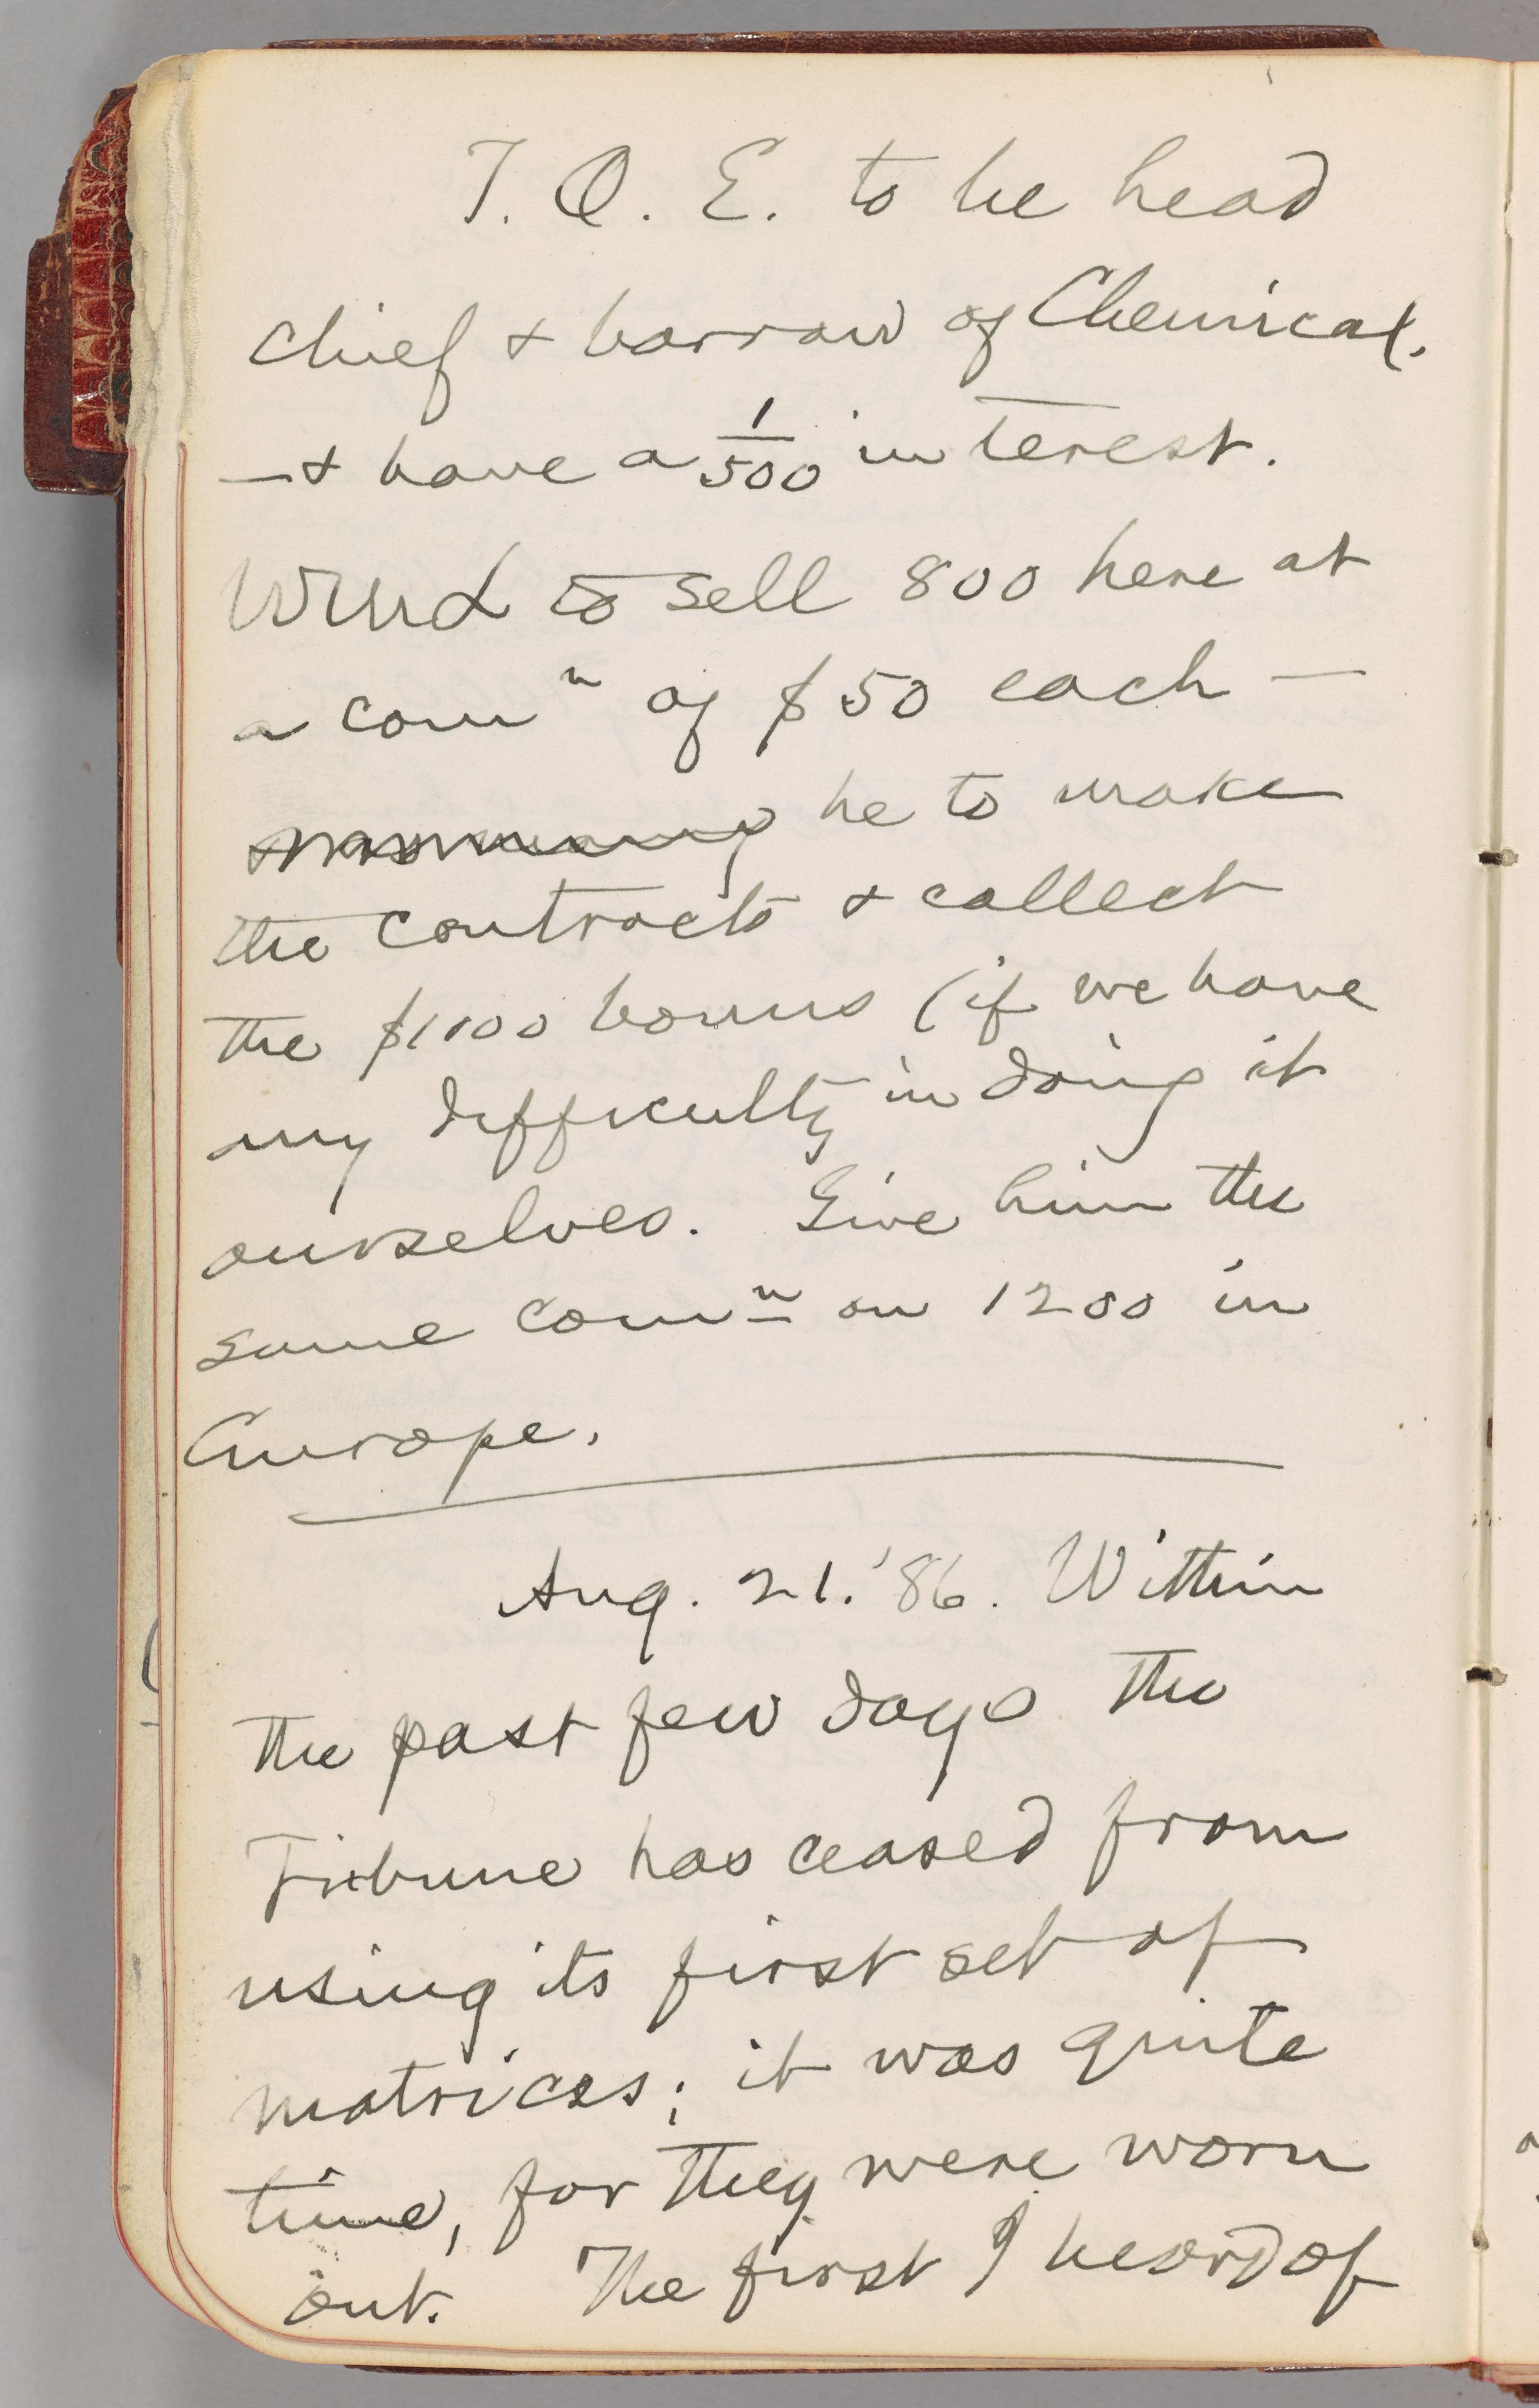 T. O. E. to be head
chief & borrow of Chemical.
— & have a 1/500 interest.
to sell 800 here at
a comn of $50 each —
he to make
the contracts & collect
the $1000 bonus (if we have
any difficulty in doing it
ourselves. Give him the
same comn on 1200 in
Europe.
Aug. 21. '86. Within
the past few days the
Tribune has ceased from
using its first set of
matrices; it was quite
time, for they were worn
out. The first I heard of